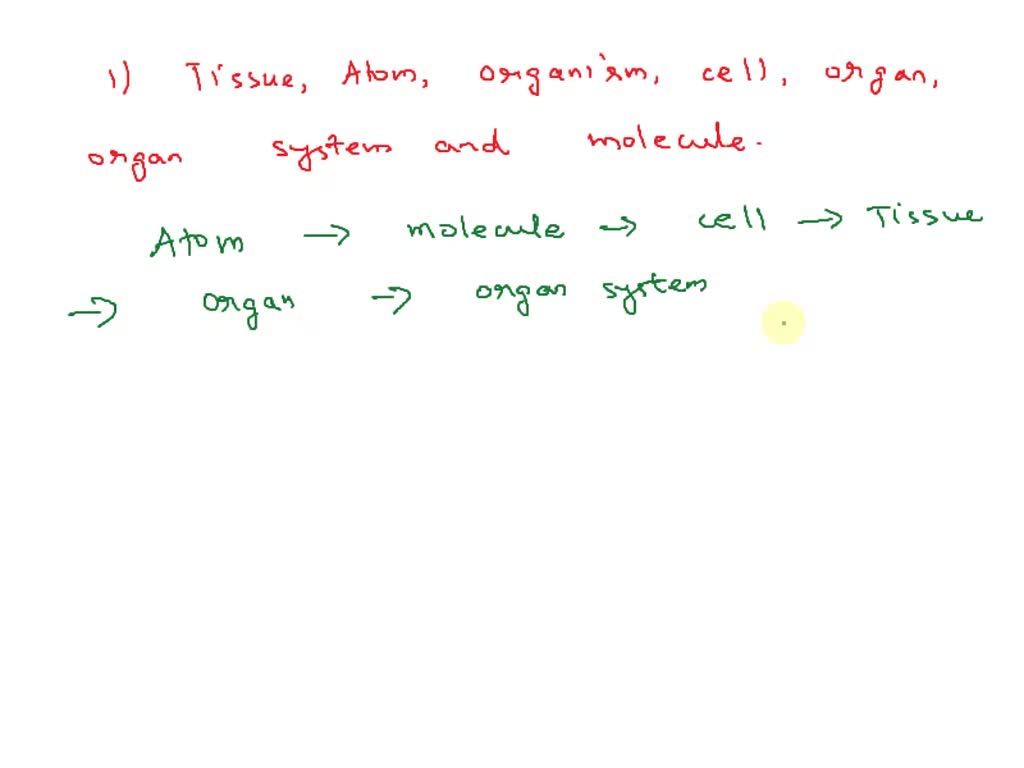 1) Tissue, Atom, organism, cell, organ,
organ system and molecule.
Atom → molecule → cell → Tissue
→ organ → organ system